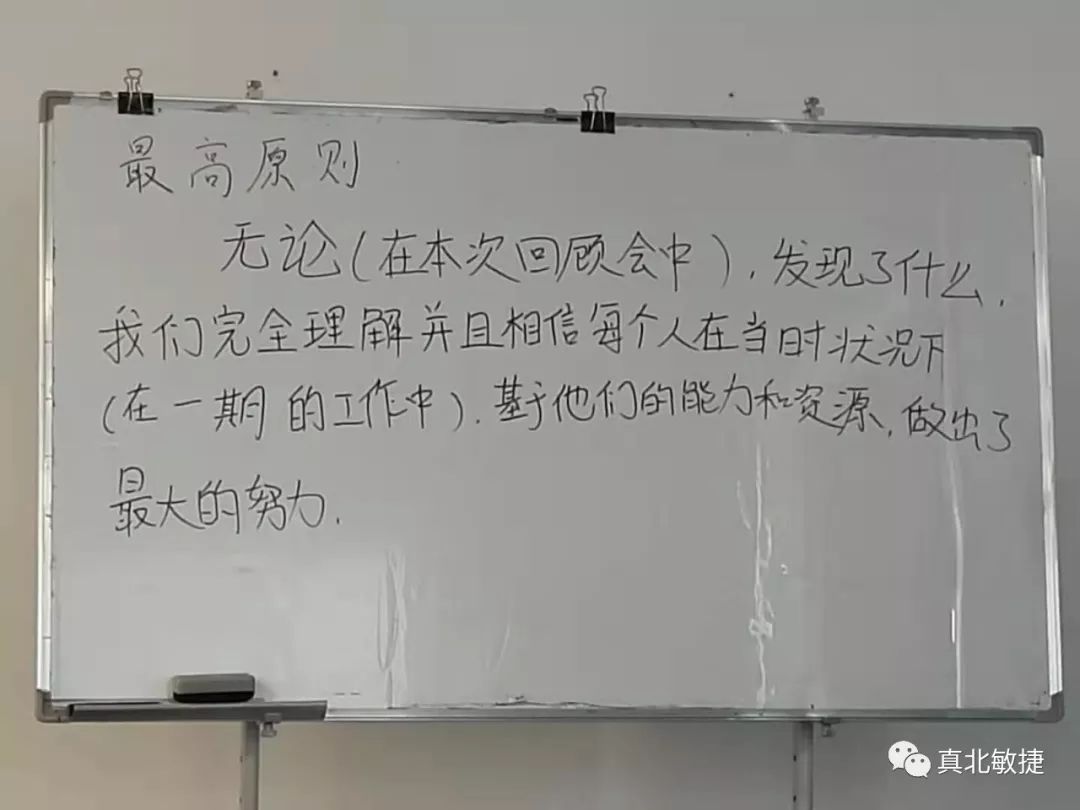 最高原则
无论(在本次回顾会中),发现了什么,
我们完全理解并且相信每个人在当时状况下
(在一期的工作中),基于他们的能力和资源,做出了
最大的努力.
真北敏捷